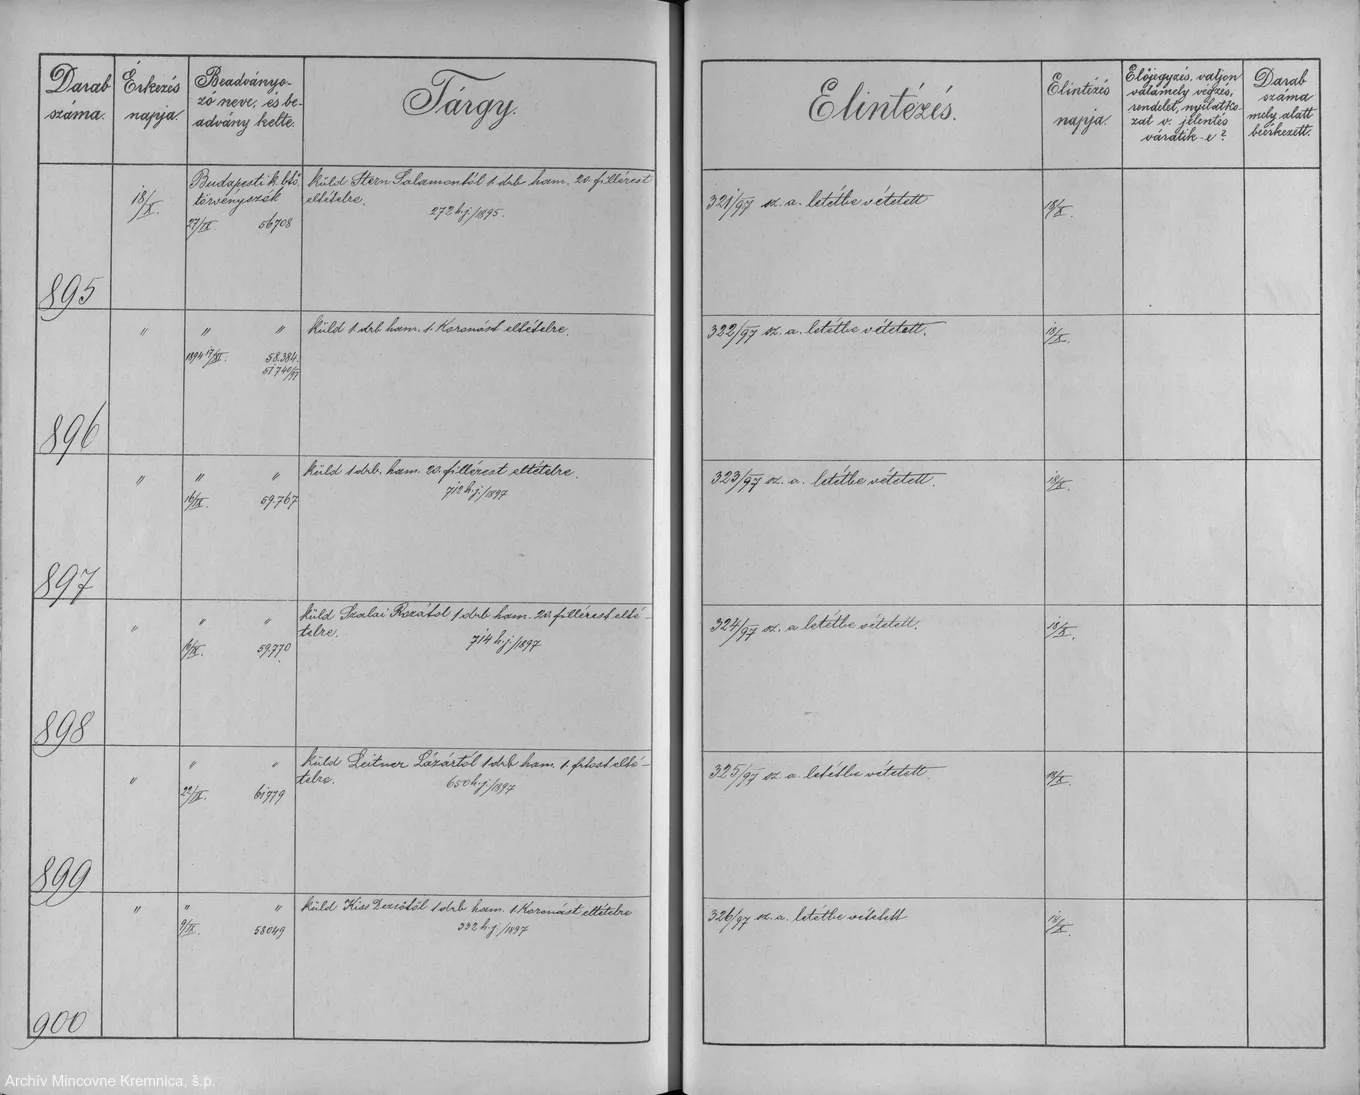 Darab száma.
Érkezés napja.
Beadványo-
zó neve, és be-
advány kelte.
Tárgy.
Elintézés.
Elintézés napja.
Előjegyzés, valjon
valamely végzés,
rendelet, nyilatko-
zat v. jelentés
váratik-e?
Darab
száma
mely alatt
beérkezett.
895
18/X.
Budapesti k. btő
törvényszék
27/IX. 56708
küld Stern Salamontól 1 drb ham. 20 fillérest
eltételre.
272 h.j./1895.
321/97 sz. a. letétbe vétetett
18/X.
896
" " "
1894 17/XI. 58.384.
51740/97
küld 1 drb ham. 1. Koronást eltételre.
322/97 sz. a. letétbe vétetett.
18/X.
897
" " "
16/IX. 59.767
küld 1 drb. ham. 20. fillérest eltételre.
712 h.j./1897
323/97 sz. a. letétbe vétetett.
18/X.
898
" " "
16/IX. 59.770
küld Szalai Rozától 1 drb ham. 20. fillérest elté-
telre.
714 h.j./1897
324/97 sz. a letétbe vétetett.
18/X.
899
" " "
22/IX. 61779
küld Leitner Lázártól 1 drb ham. 1. frtost elté-
telre.
650 h.j./1897
325/97 sz. a. letétbe vétetett
18/X.
900
" " "
9/IX. 58049
küld Kiss Dezsőtől 1 drb ham. 1. Koronást eltételre
332 h.j./1897
326/97 sz. a. letétbe vétetett
18/X.
Archív Mincovne Kremnica, š.p.